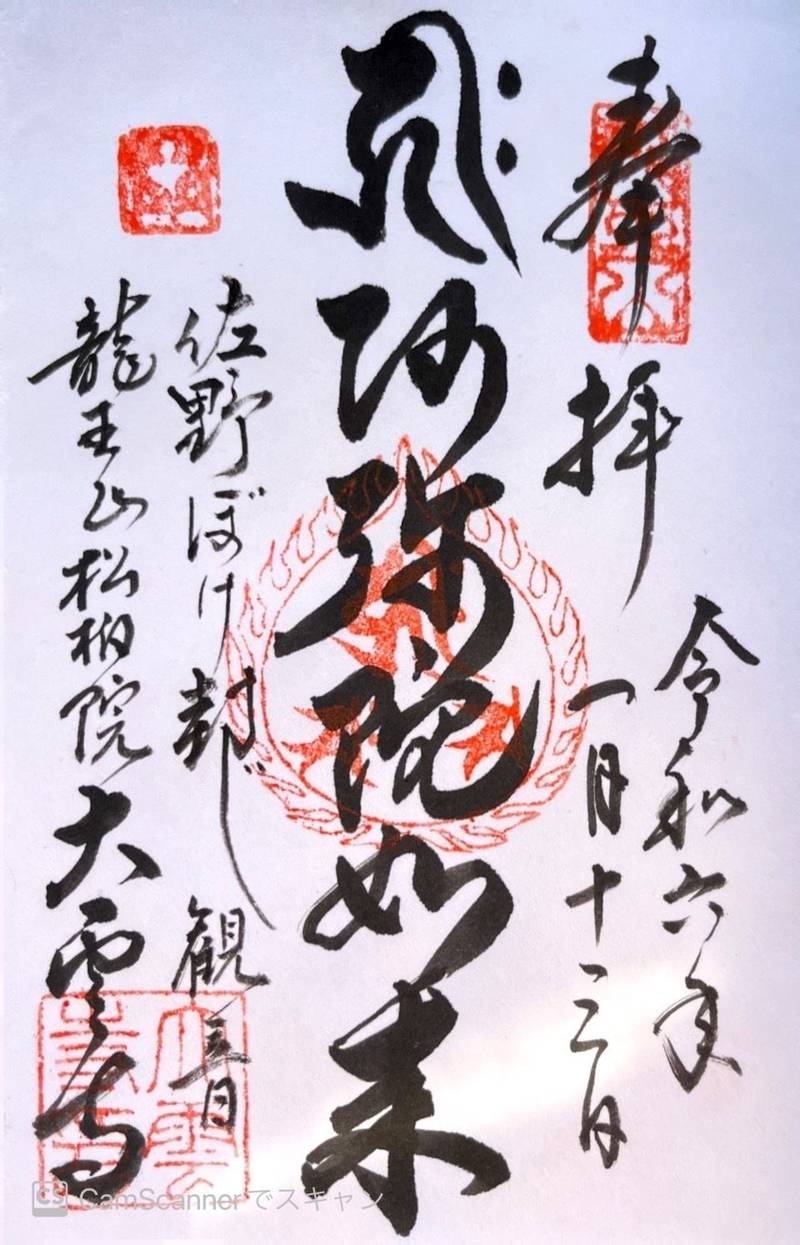 奉拝
令和六年
一月十三日
阿弥陀如来
佐野ぼけ封じ観音
龍王山松柏院大雲寺
CS CamScannerでスキャン